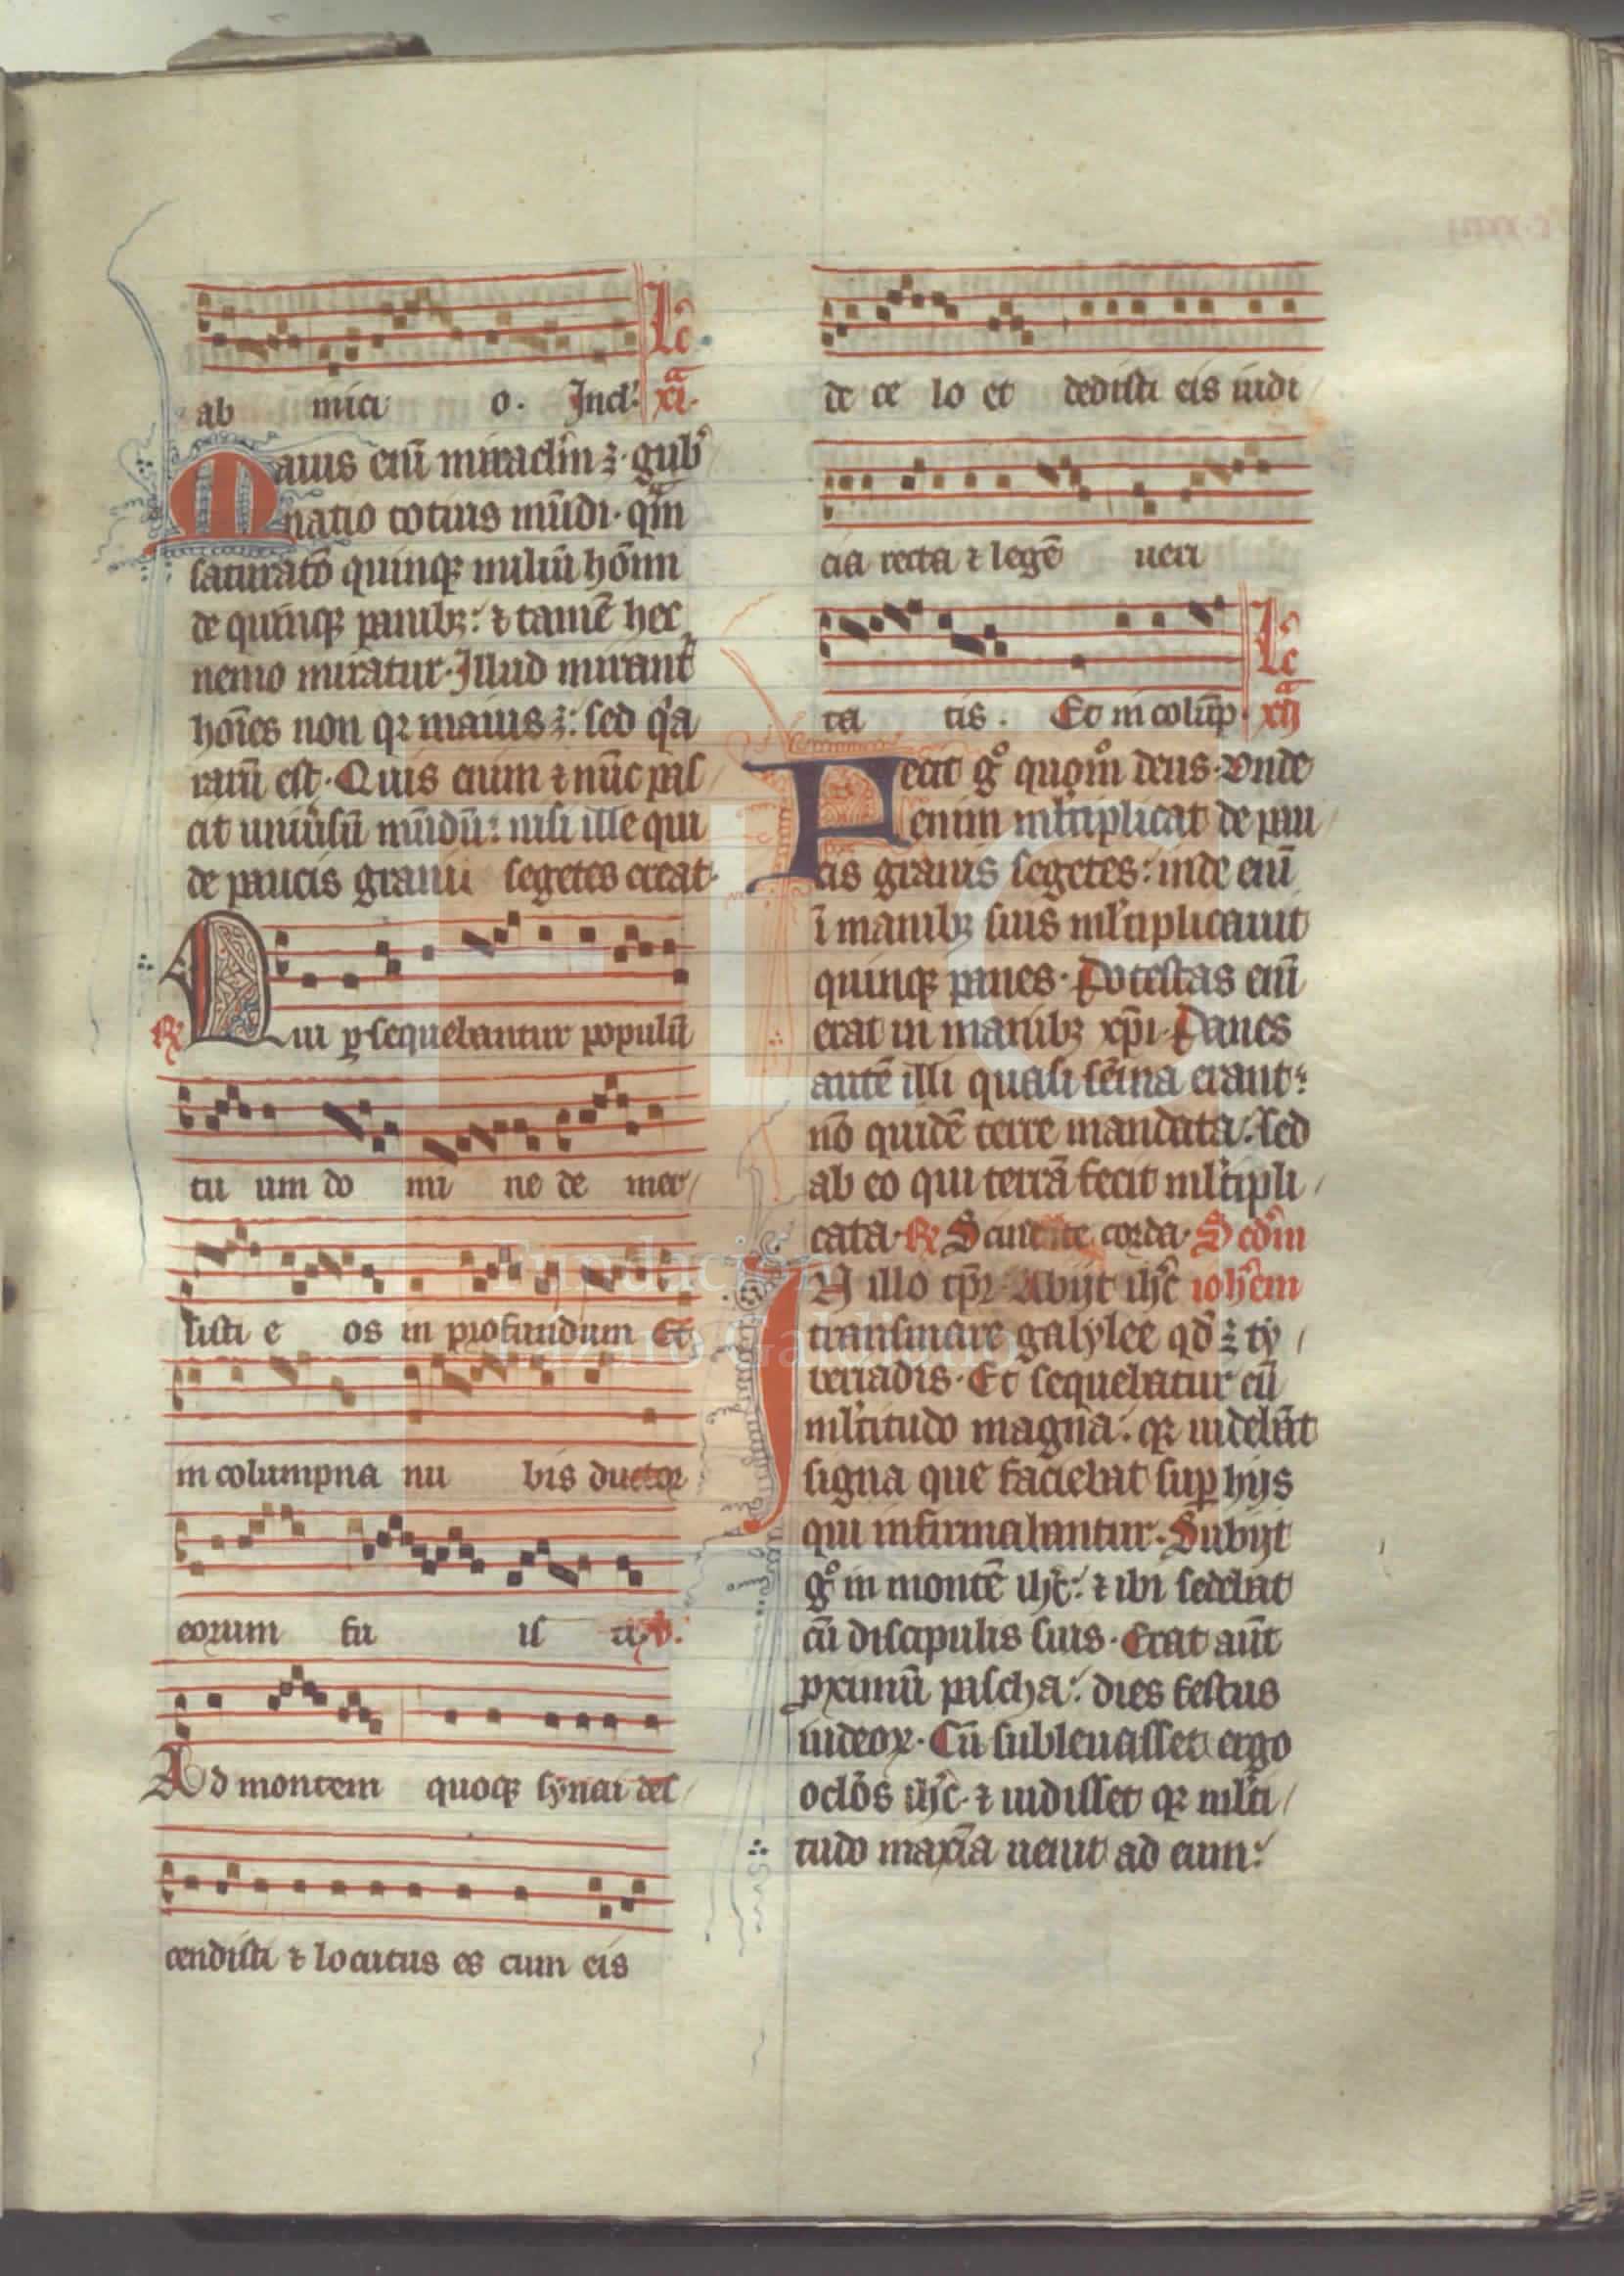 ab mici o. Incl. Lc̄
xi.
Maius enī miraclm̄ ē. gub̾
natio totius mūdi. qm̄
saturato quinqꝫ miliū hōīm
de quinqꝫ panibꝫ: ⁊ tamē hec
nemo miratur. Illud mirant̾
hoīes non qꝛ maius ē: sed qꝛ a
rarū est. Quis enim ⁊ nūc pas
cit uniūsū mūdū: nisi ille qui
de paucis granis segetes creat.
℟ Qui ꝑsequebantur populū
tu um do mi ne de mer
sisti e os in profundum Et
in columpna nu bis ductor
eorum fu is ti ℣.
Ad montem quoqꝫ synai des
cendisti ⁊ locutus es cum eis
de ce lo et dedisti eis iudi
cia recta ⁊ legē ueri
ta tis. Et in colūp. Lc̄
xij
Fecit gͦ quomͦ deus. Vnde
enim ml̾tiplicat de pau
cis granis segetes: inde enī
ī manibꝫ suis ml̾tiplicauit
quinqꝫ panes. Potestas enī
erat in manibꝫ xp̄i. Panes
autē illi quasi sēina erant:
nō quidē terre mandata: sed
ab eo qui terrā fecit ml̾tipli
cata. ℟ Scindite corda. Scdm̄
In illo tp̄r. Abijt ih̄c ioh̄em
transmare galylee qd̾ ē ty
beriadis. Et sequebatur eū
ml̾titudo magna: qꝛ uidebāt
signa que faciebat suꝑ hijs
qui infirmabantur. Subijt
gͦ in montē ih̄c: ⁊ ibi sedebat
cū discipulis suis. Erat aūt
ꝓximū pascha: dies festus
iudeoꝝ. Cū subleuasset ergo
oclōs ih̄c. ⁊ uidisset qꝛ ml̾ti
tudo maxīa uenit ad eum:
Fundación
Lázaro Galdiano